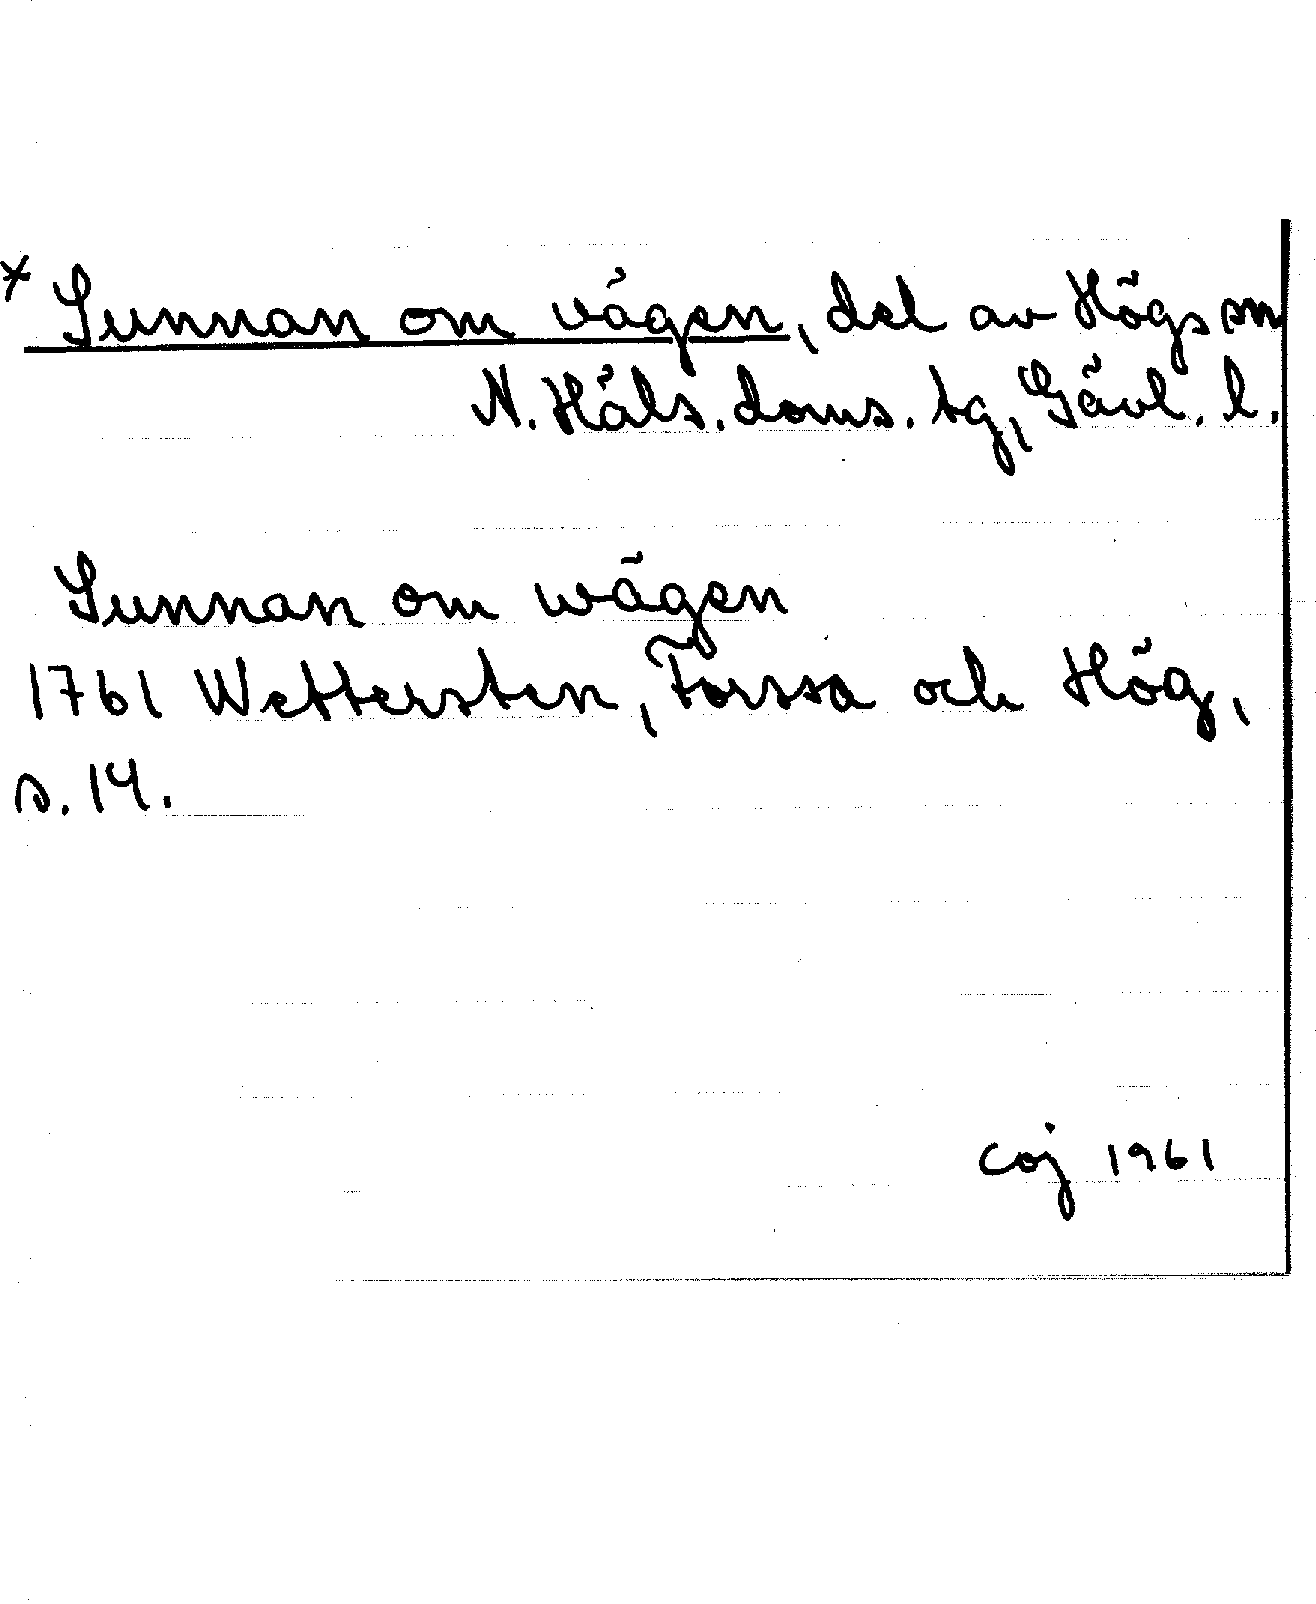 * Sunnan om vägen, del av Högs sn
N. Häls. doms. tg, Gävl. l.
Sunnan om wägen
1761 Wettersten, Forssa och Hög,
s. 14.
Coj 1961